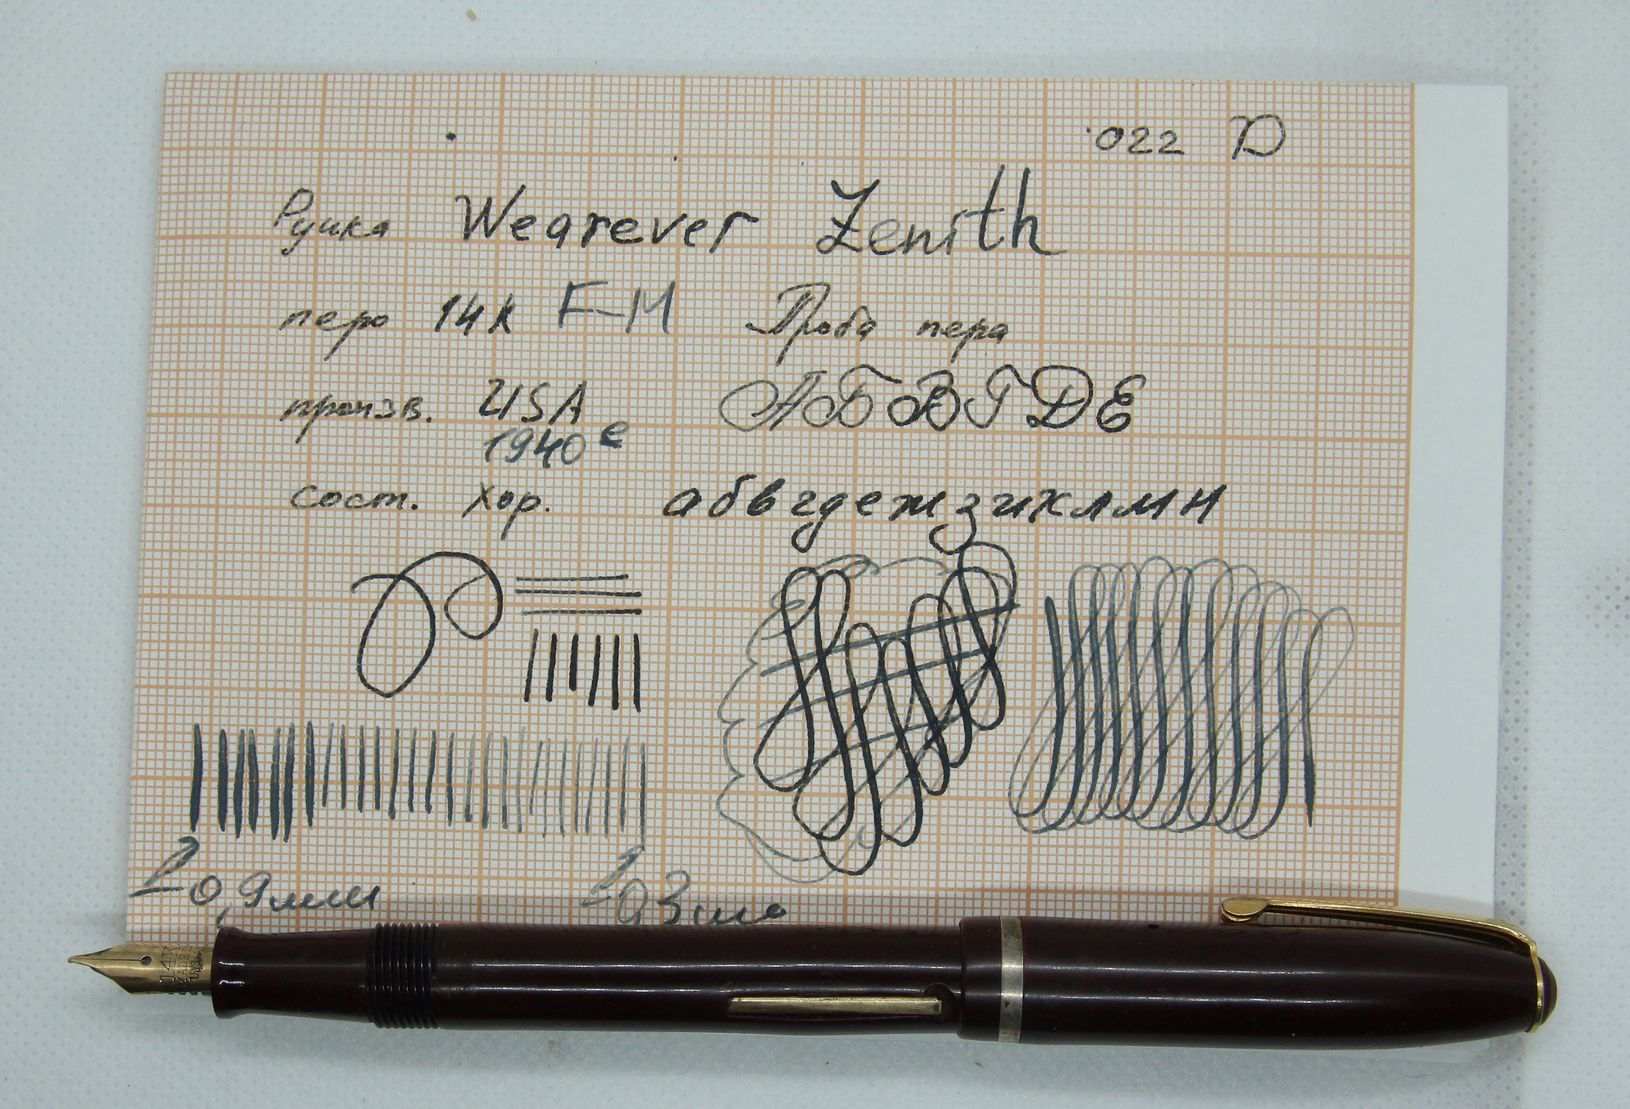 022 D
Ручка Wearever Zenith
перо 14к F-M Проба пера
произв. USA АБВГДЕ
1940е
сост. хор. абвгдежзиклмн
0,9мм 0,3мм
14K